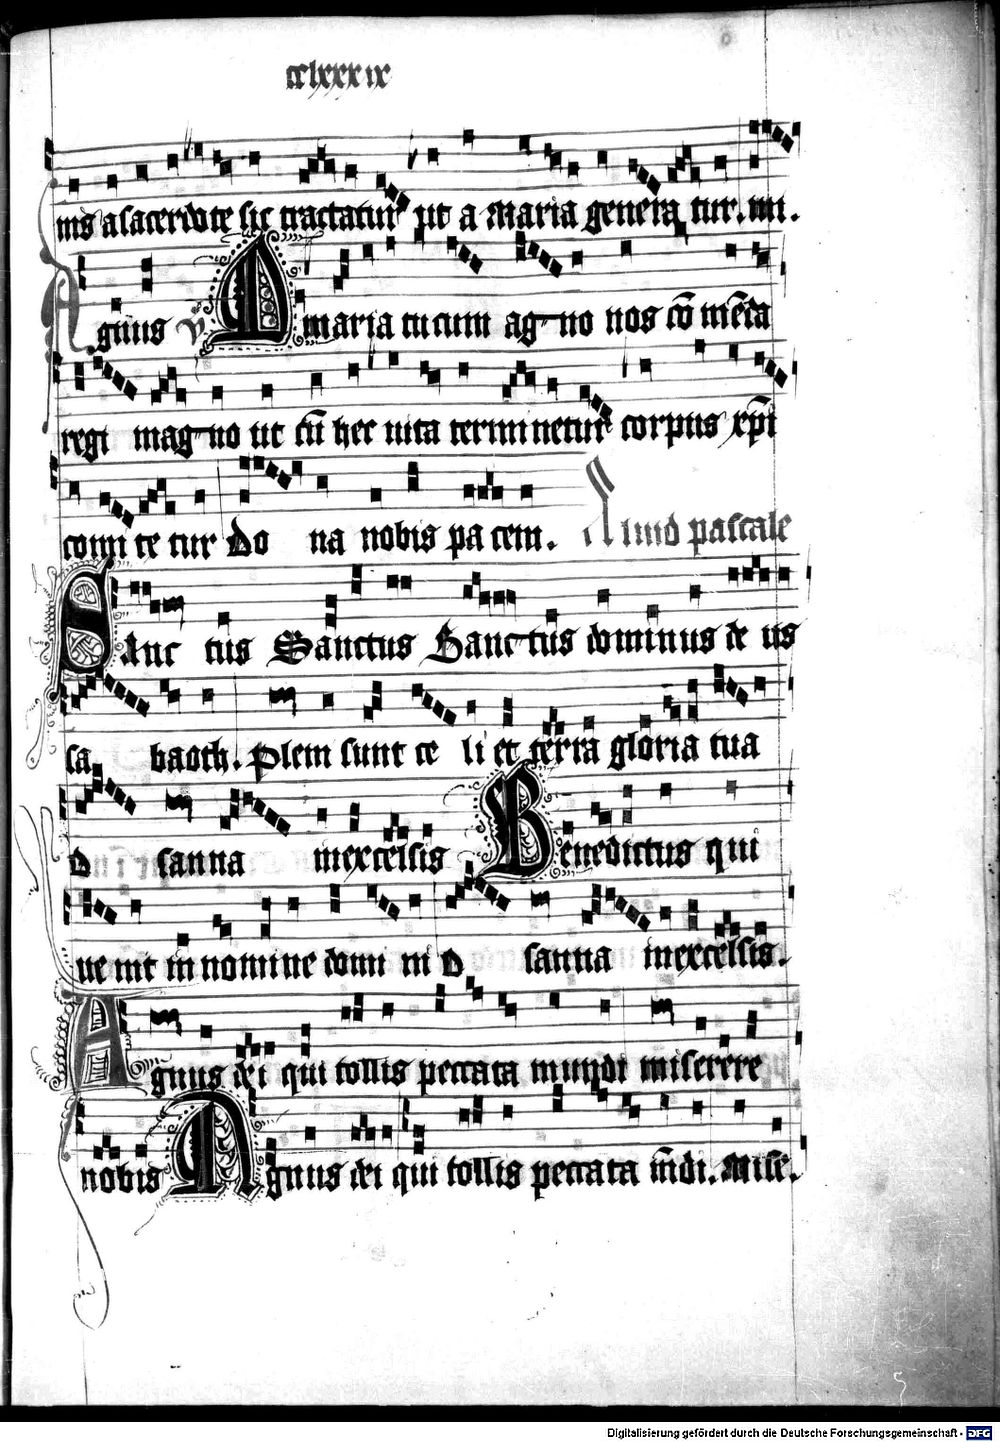 cclxxxix
mis a sacerdote sic tractatur ut a maria genera tur. mi.
Agnus v Maria tu cum ag no nos cō mēda
regi mag no ut cū hec uita termi netur corpus xp̄i
comi te tur Do na nobis pa cem. Aliud pascale
Sanc tus Sanctus Sanc tus dominus de us
sa baoth. Pleni sunt ce li et terra gloria tua
O sanna in excelsis Benedictus qui
ue nit in nomine domi ni O sanna in excelsis.
Agnus dei qui tollis peccata mundi miserere
nobis Agnus dei qui tollis peccata mūdi. Mise.
Digitalisierung gefördert durch die Deutsche Forschungsgemeinschaft - DFG